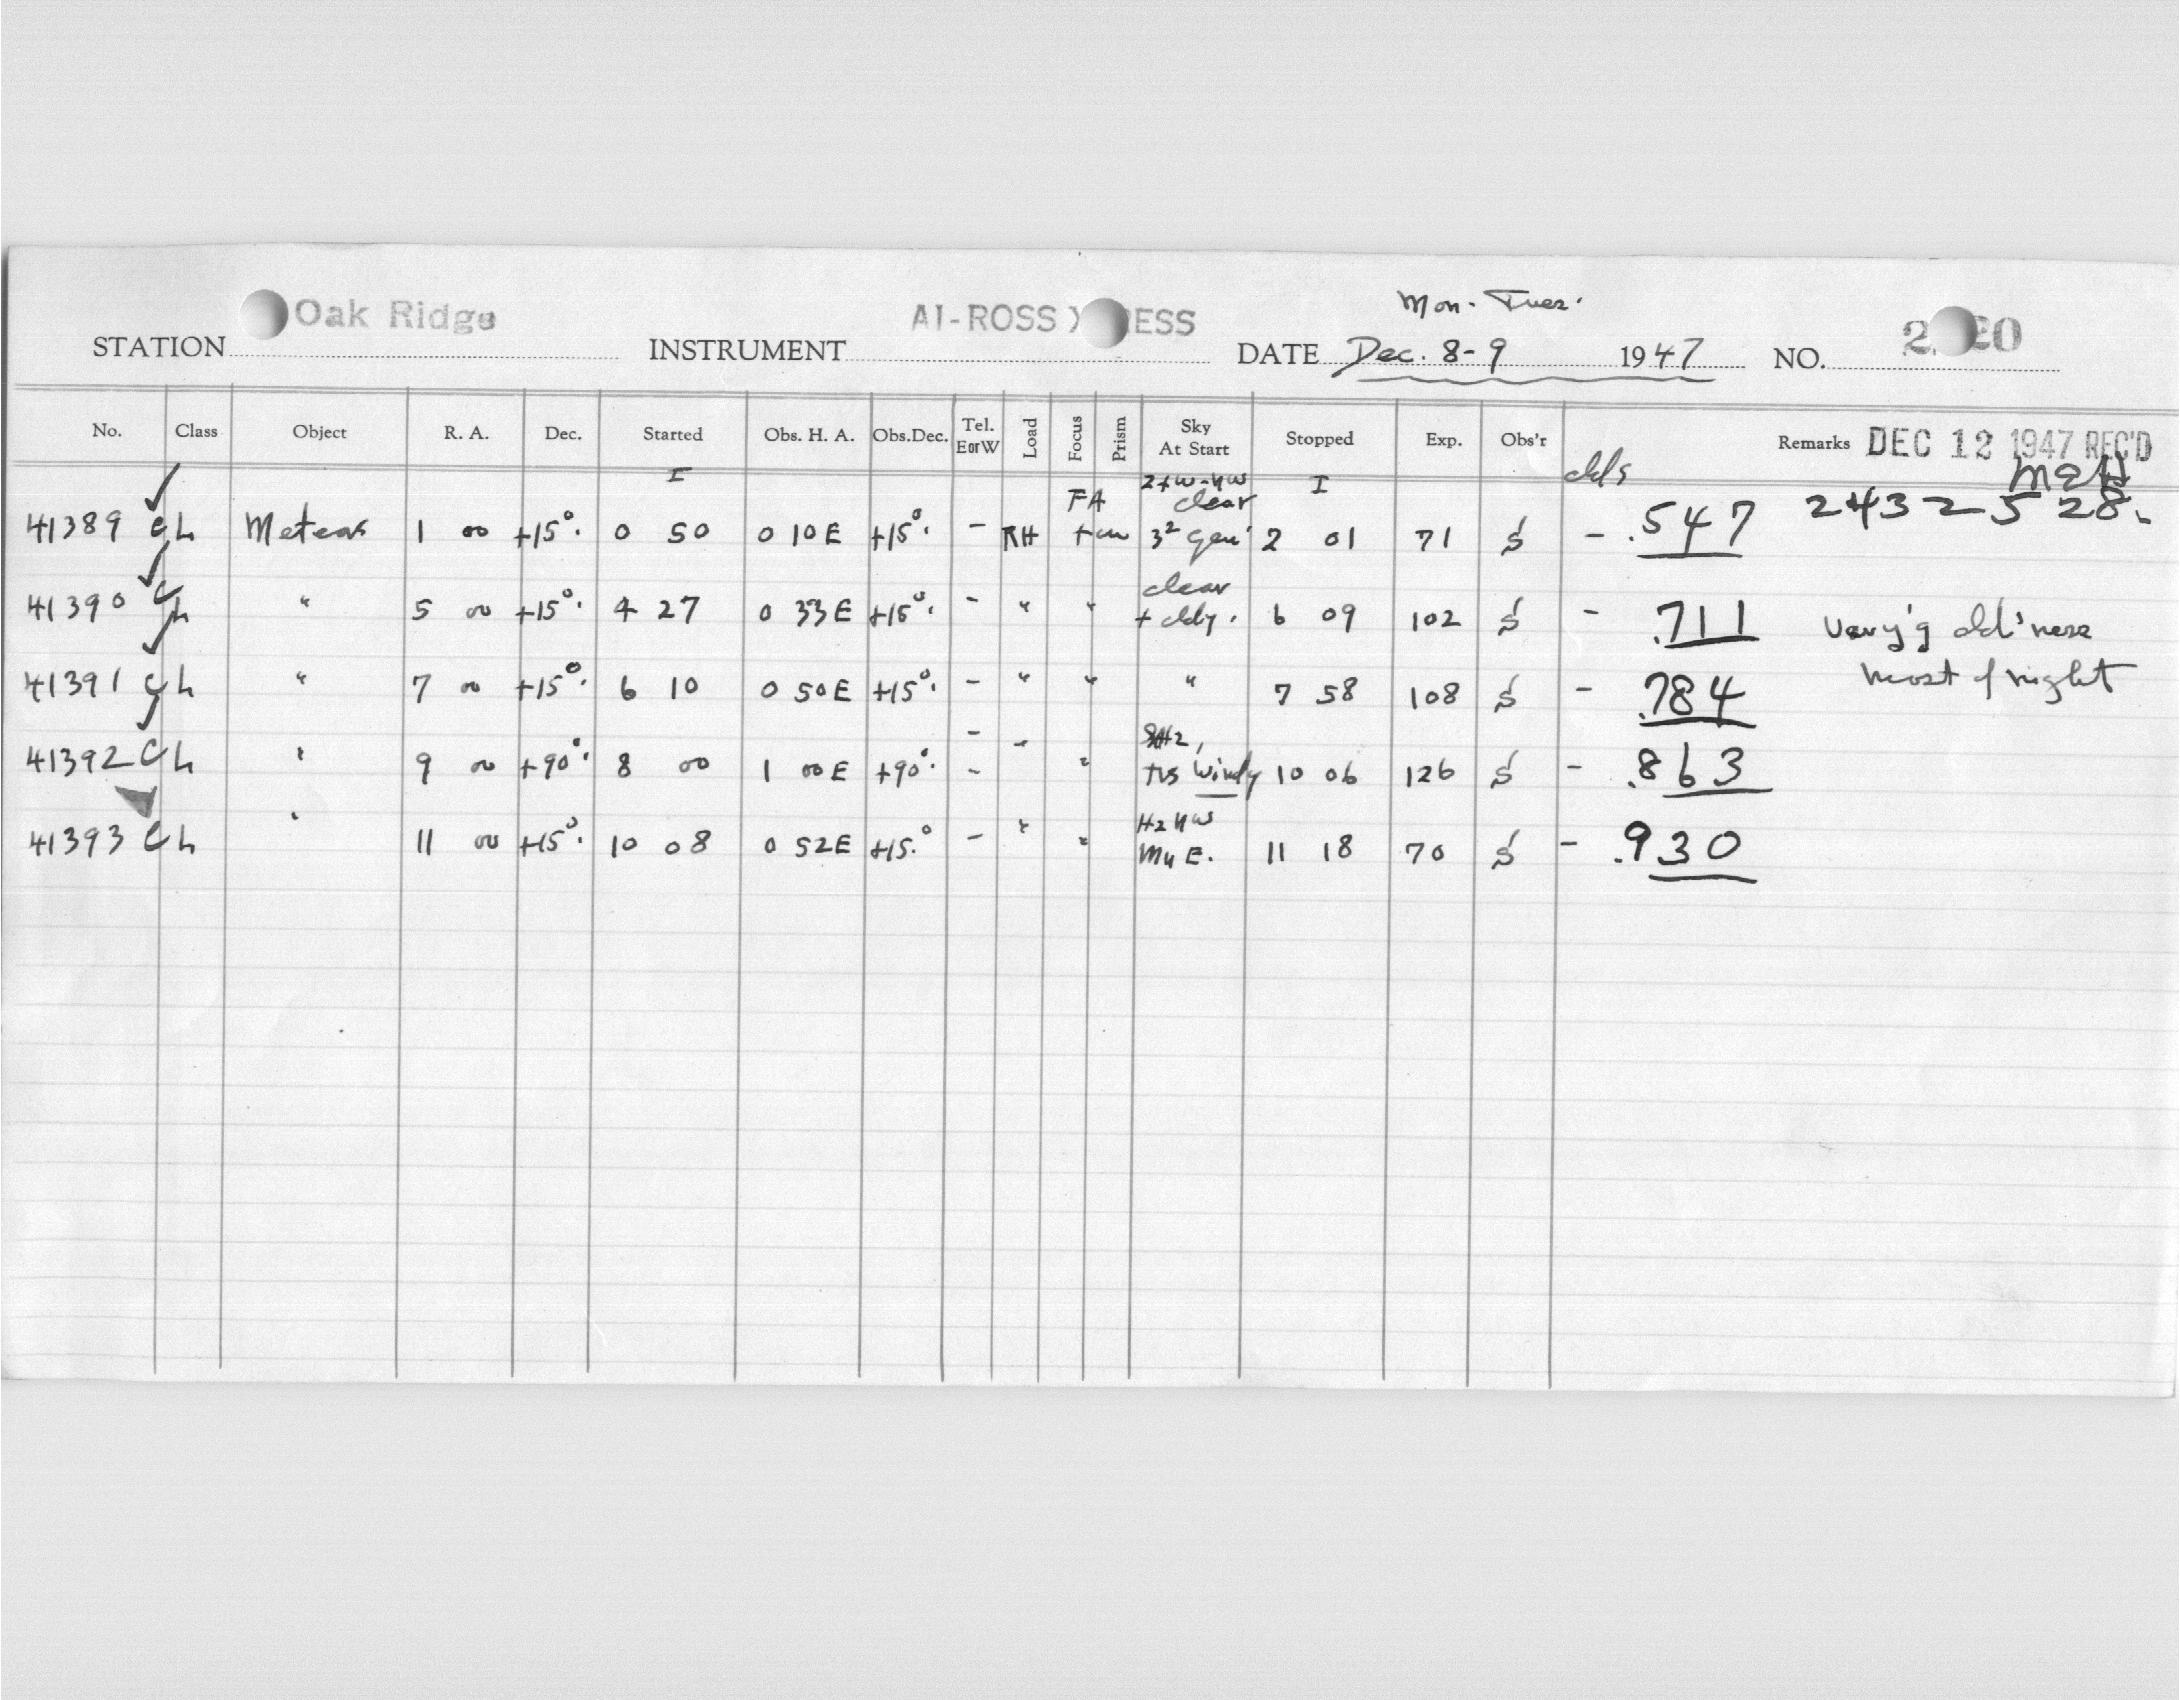 Mon. Tues.
STATION Oak Ridge INSTRUMENT AI-ROSS X ESS DATE Dec. 8-9 1947 NO. 2 20
No. Class Object R. A. Dec. Started Obs. H. A. Obs.Dec. Tel. E or W Load Focus Prism Sky At Start Stopped Exp. Obs'r Remarks DEC 12 1947 REC'D
I I clds
41389 C h Meteors 1 00 +15°. 0 50 0 10E +15°. - RH FA clear 2 01 71 S - .547 2432528.
41390 C h " 5 00 +15°. 4 27 0 33E +15°. - " " clear + cldy. 6 09 102 S - .711 Vary'g cld'ness
41391 C h " 7 00 +15°. 6 10 0 50E +15°. - " " " 7 58 108 S - .784 most of night
41392 C h " 9 00 +90°. 8 00 1 00E +90°. - " " Windy 10 06 126 S - .863
41393 C h " 11 00 +15°. 10 08 0 52E +15.° - " " Hz NW E. 11 18 70 S - .930